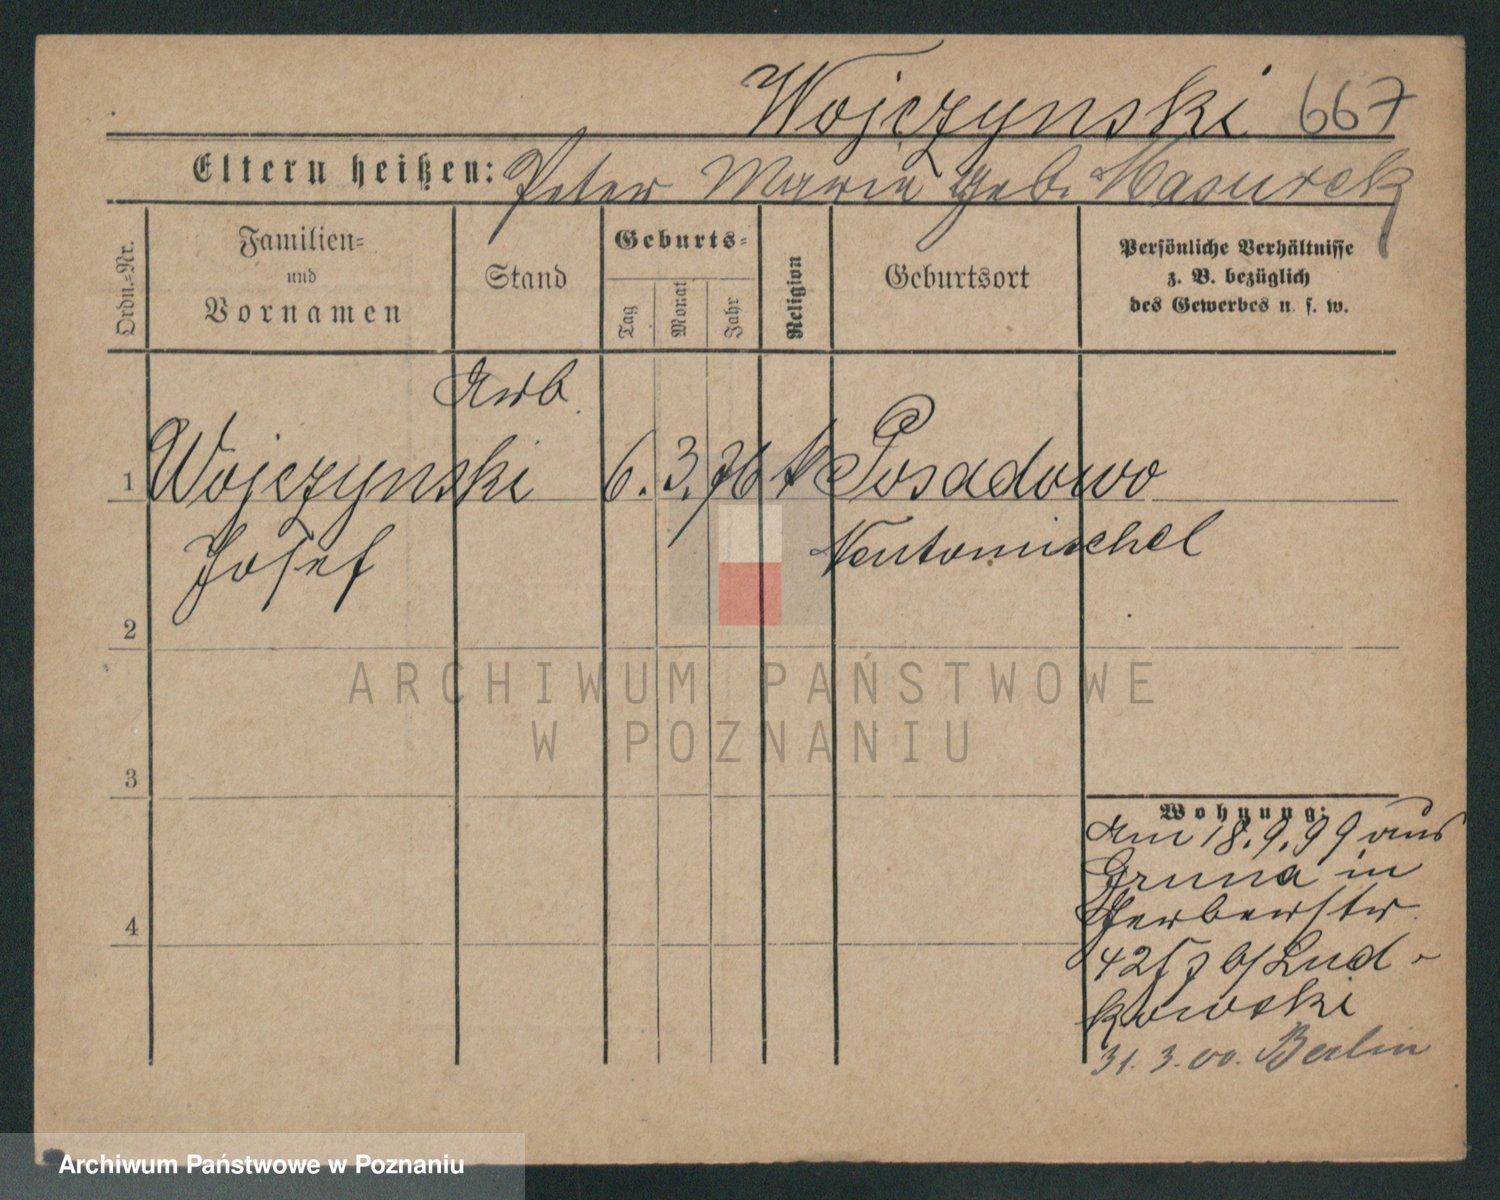 Wojczynski 667
Eltern heißen: Peter Marie geb. Masurek
Ordn.-Nr.
Familien-
und
Vornamen
Stand
Geburts-
Tag
Monat
Jahr
Religion
Geburtsort
Persönliche Verhältnisse
z. B. bezüglich
des Gewerbes u. s. w.
Arb.
1 Wojczynski 6. 3. 76 k Posadowo
Josef Neutomischel
2
ARCHIWUM PAŃSTWOWE
W POZNANIU
3
Wohnung:
Am 18.9.99 aus
Gruna in
Gerberstr.
42 b/Lud-
kowski
4
31.3.00. Berlin
Archiwum Państwowe w Poznaniu